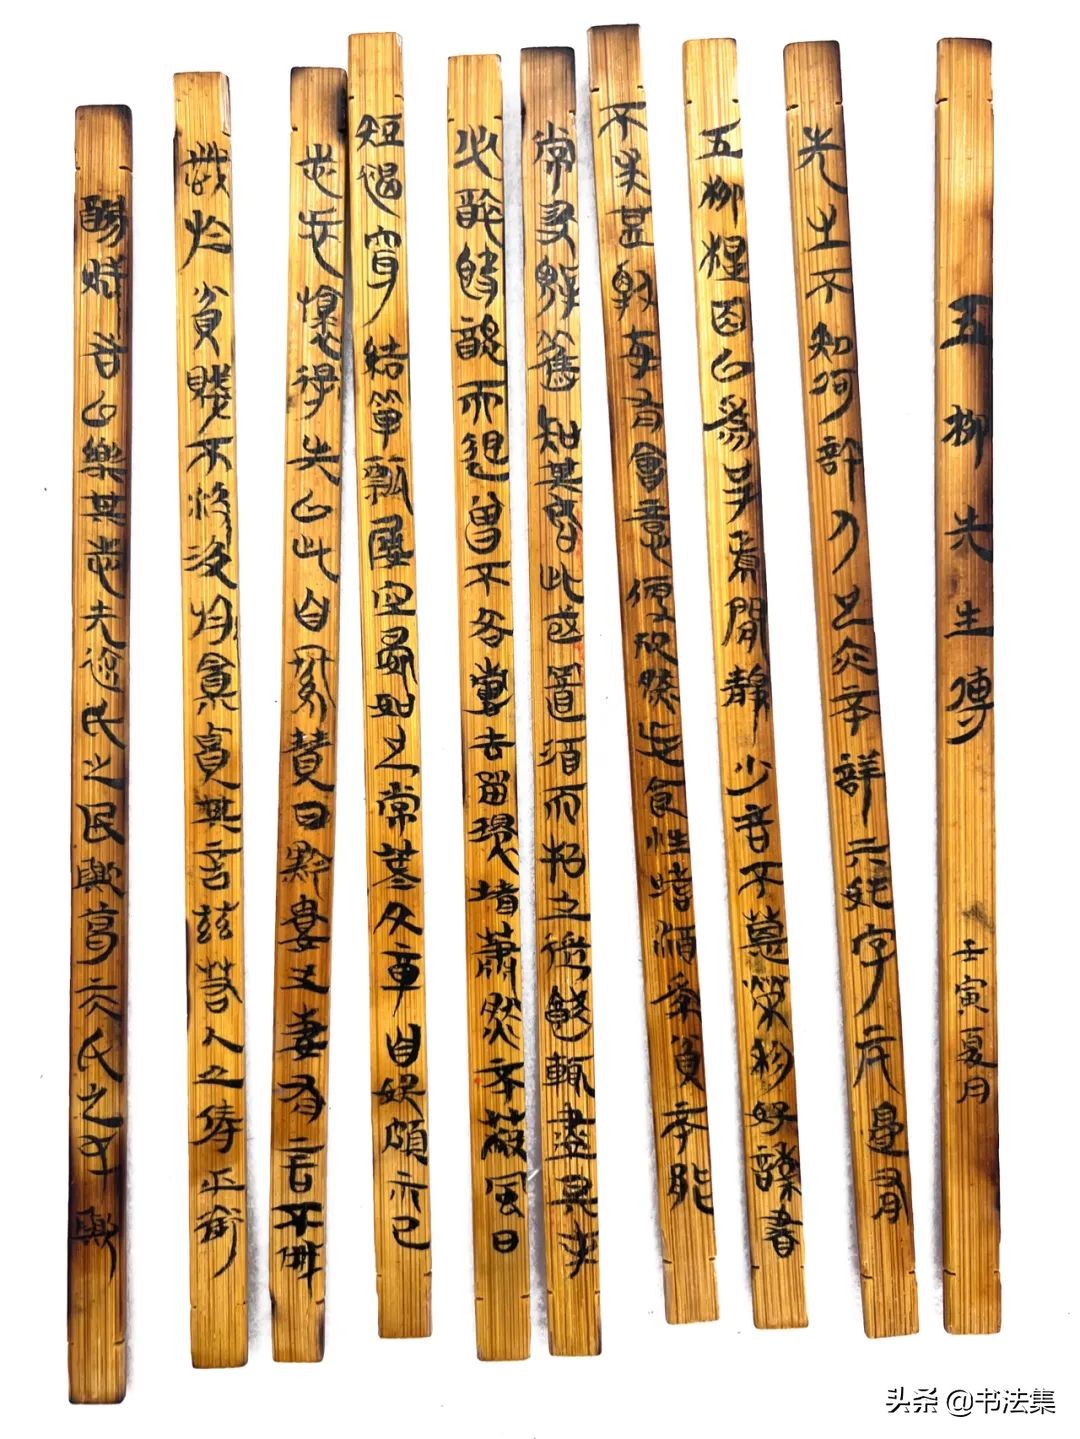 五柳先生傳 壬寅夏月
先生不知何許人也亦不詳其姓字宅邊有
五柳樹因以為号焉閒靜少言不慕榮利好讀書
不求甚解每有會意便欣然忘食性嗜酒家貧不能
常得親舊知其如此或置酒而招之造飲輒盡期在
必醉既醉而退曾不吝情去留環堵蕭然不蔽風日
短褐穿結簞瓢屢空晏如也常著文章自娛頗示己
志忘懷得失以此自終贊曰黔婁之妻有言不戚
戚於貧賤不汲汲於富貴其言茲若人之儔乎銜
觴賦詩以樂其志無懷氏之民歟葛天氏之民歟
头条 @书法集